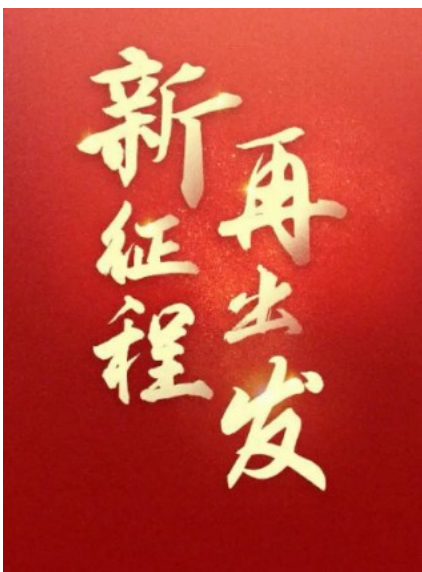 新征程
再出发